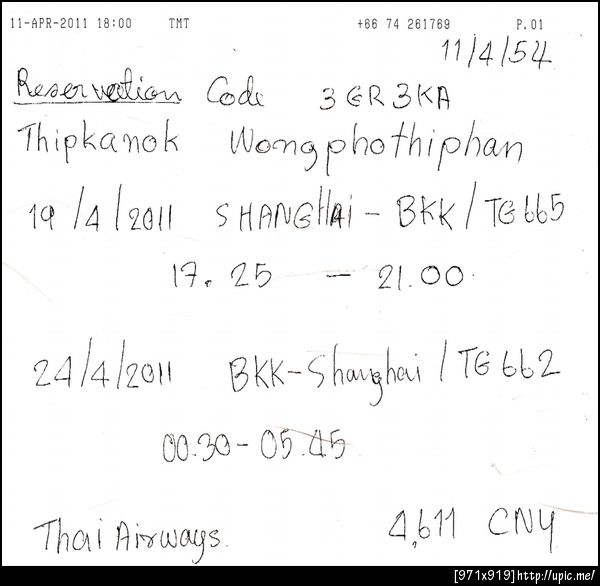 11-APR-2011 18:00 TMT +66 74 261769 P.01
11/4/54
Reservation Code 3GR3KA
Thipkanok Wongphothiphan
19/4/2011 SHANGHAi - BKK / TG665
17.25 - 21.00
24/4/2011 BKK-Shanghai / TG662
00.30-05.45
Thai Airways. 4,611 CNY
[971x919]http://upic.me/